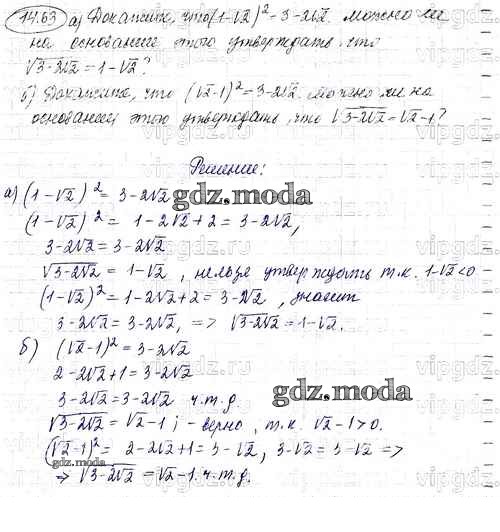 14.63 а) Докажите, что (1-√2)² = 3-2√2. Можно ли
на основании этого утверждать, что
√3-2√2 = 1-√2?
б) Докажите, что (√2-1)² = 3-2√2. Можно ли на
основании этого утверждать, что √3-2√2 = √2-1?
Решение:
а) (1-√2)² = 3-2√2
(1-√2)² = 1-2√2+2 = 3-2√2,
3-2√2 = 3-2√2
√3-2√2 = 1-√2, нельзя утверждать т.к. 1-√2<0
(1-√2)² = 1-2√2+2 = 3-2√2, значит
3-2√2 = 3-2√2, => √3-2√2 = 1-√2.
б) (√2-1)² = 3-2√2
2-2√2+1 = 3-2√2
3-2√2 = 3-2√2 ч.т.д.
√3-2√2 = √2-1; - верно, т.к. √2-1>0.
(√2-1)² = 2-2√2+1 = 3-√2, 3-√2 = 3-√2 =>
=> √3-2√2 = √2-1. ч.т.д.
gdz.moda
gdz.moda
gdz.moda
vipgdz
vipgdz
vipgdz
vipgdz
vipgdz